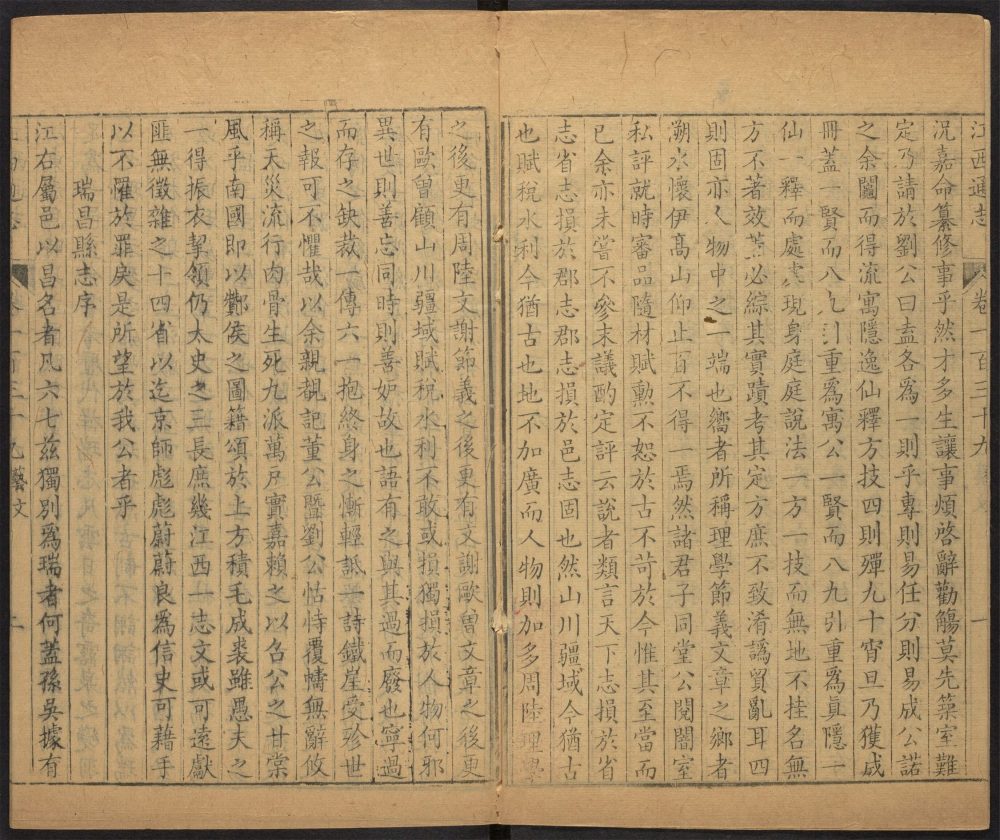 江西通志
卷一百三十九
一
況嘉命纂修事乎然才多生讓事煩啓辭勸觴莫先築室難
定乃請於劉公曰盍各爲一則乎專則易任分則易成公諾
之余闔而得流寓隱逸仙釋方技四則殫九十宵旦乃獲成
冊蓋一賢而八九引重爲寓公一賢而八九引重爲眞隱一
仙一釋而處處現身庭庭說法一方一技而無地不挂名無
方不著效茲必綜其實蹟考其定方庶不致淆譌貿亂耳四
則固亦人物中之一端也嚮者所稱理學節義文章之鄉者
溯水懷伊高山仰止百不得一焉然諸君子同堂公閱闇室
私評就時審品隨材賦勳不恕於古不苛於今惟其至當而
已余亦未嘗不參末議酌定評云說者類言天下志損於省
志省志損於郡志郡志損於邑志固也然山川疆域今猶古
也賦稅水利今猶古也地不加廣而人物則加多周陸理學
之後更有周陸文謝節義之後更有文謝歐曾文章之後更
有歐曾顧山川疆域賦稅水利不敢或損獨損於人物何邪
異世則善忘同時則善妒故也語有之與其過而廢也寧過
而存之缺裁一傳六一抱終身之慚輕詆一詩鐵崖受殄世
之報可不懼哉以余親覩記董公暨劉公怙恃覆幬無辭攸
稱天災流行肉骨生死九派萬戶實嘉賴之以召公之甘棠
風乎南國即以酇侯之圖籍頌於上方積毛成裘雖愚夫之
一得振衣挈領仍太史之三長庶幾江西一志文或可遠獻
匪無徵雜之十四省以迄京師彪彪蔚蔚良爲信史可藉手
以不懼於罪戾是所望於我公者乎
瑞昌縣志序
江右屬邑以昌名者凡六七茲獨別爲瑞者何蓋孫吳據有
藝文